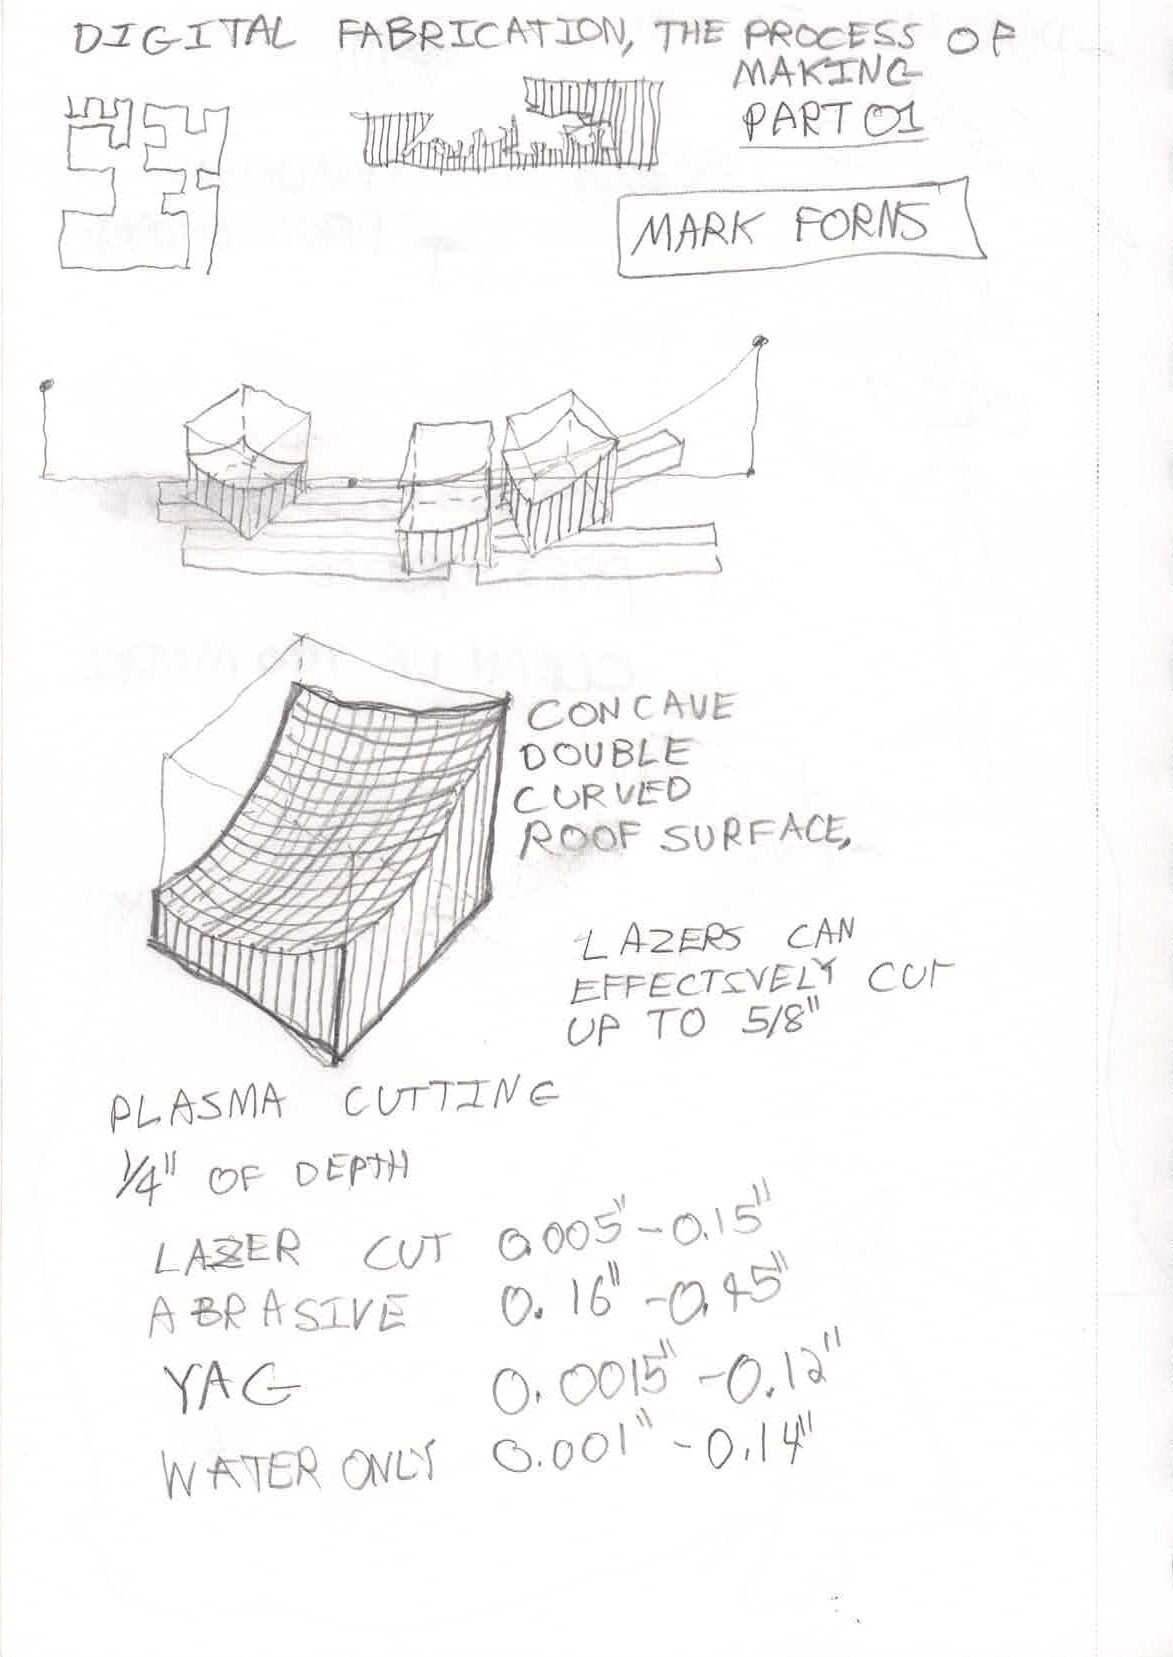 DIGITAL FABRICATION, THE PROCESS OF
MAKING
PART 01
MARK FORNS
CONCAVE
DOUBLE
CURVED
ROOF SURFACE,
LAZERS CAN
EFFECTIVELY CUT
UP TO 5/8"
PLASMA CUTTING
1/4" OF DEPTH
LAZER CUT 0.005" - 0.15"
ABRASIVE 0.16" - 0.45"
YAG 0.0015" - 0.12"
WATER ONLY 0.001" - 0.14"